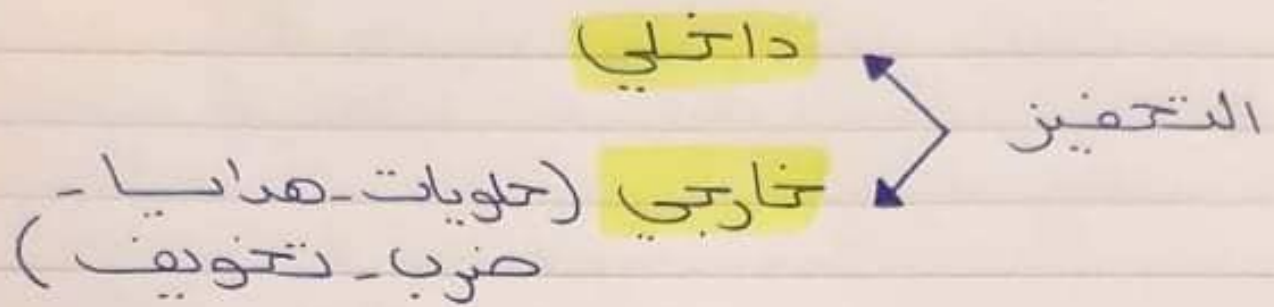 التحفيز
داخلي
خارجي (حلويات - هدايا -
ضرب - تخويف)